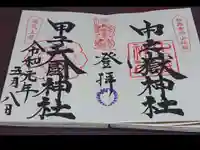 中之嶽神社
登拝
甲子大國神社
令和元年五月八日